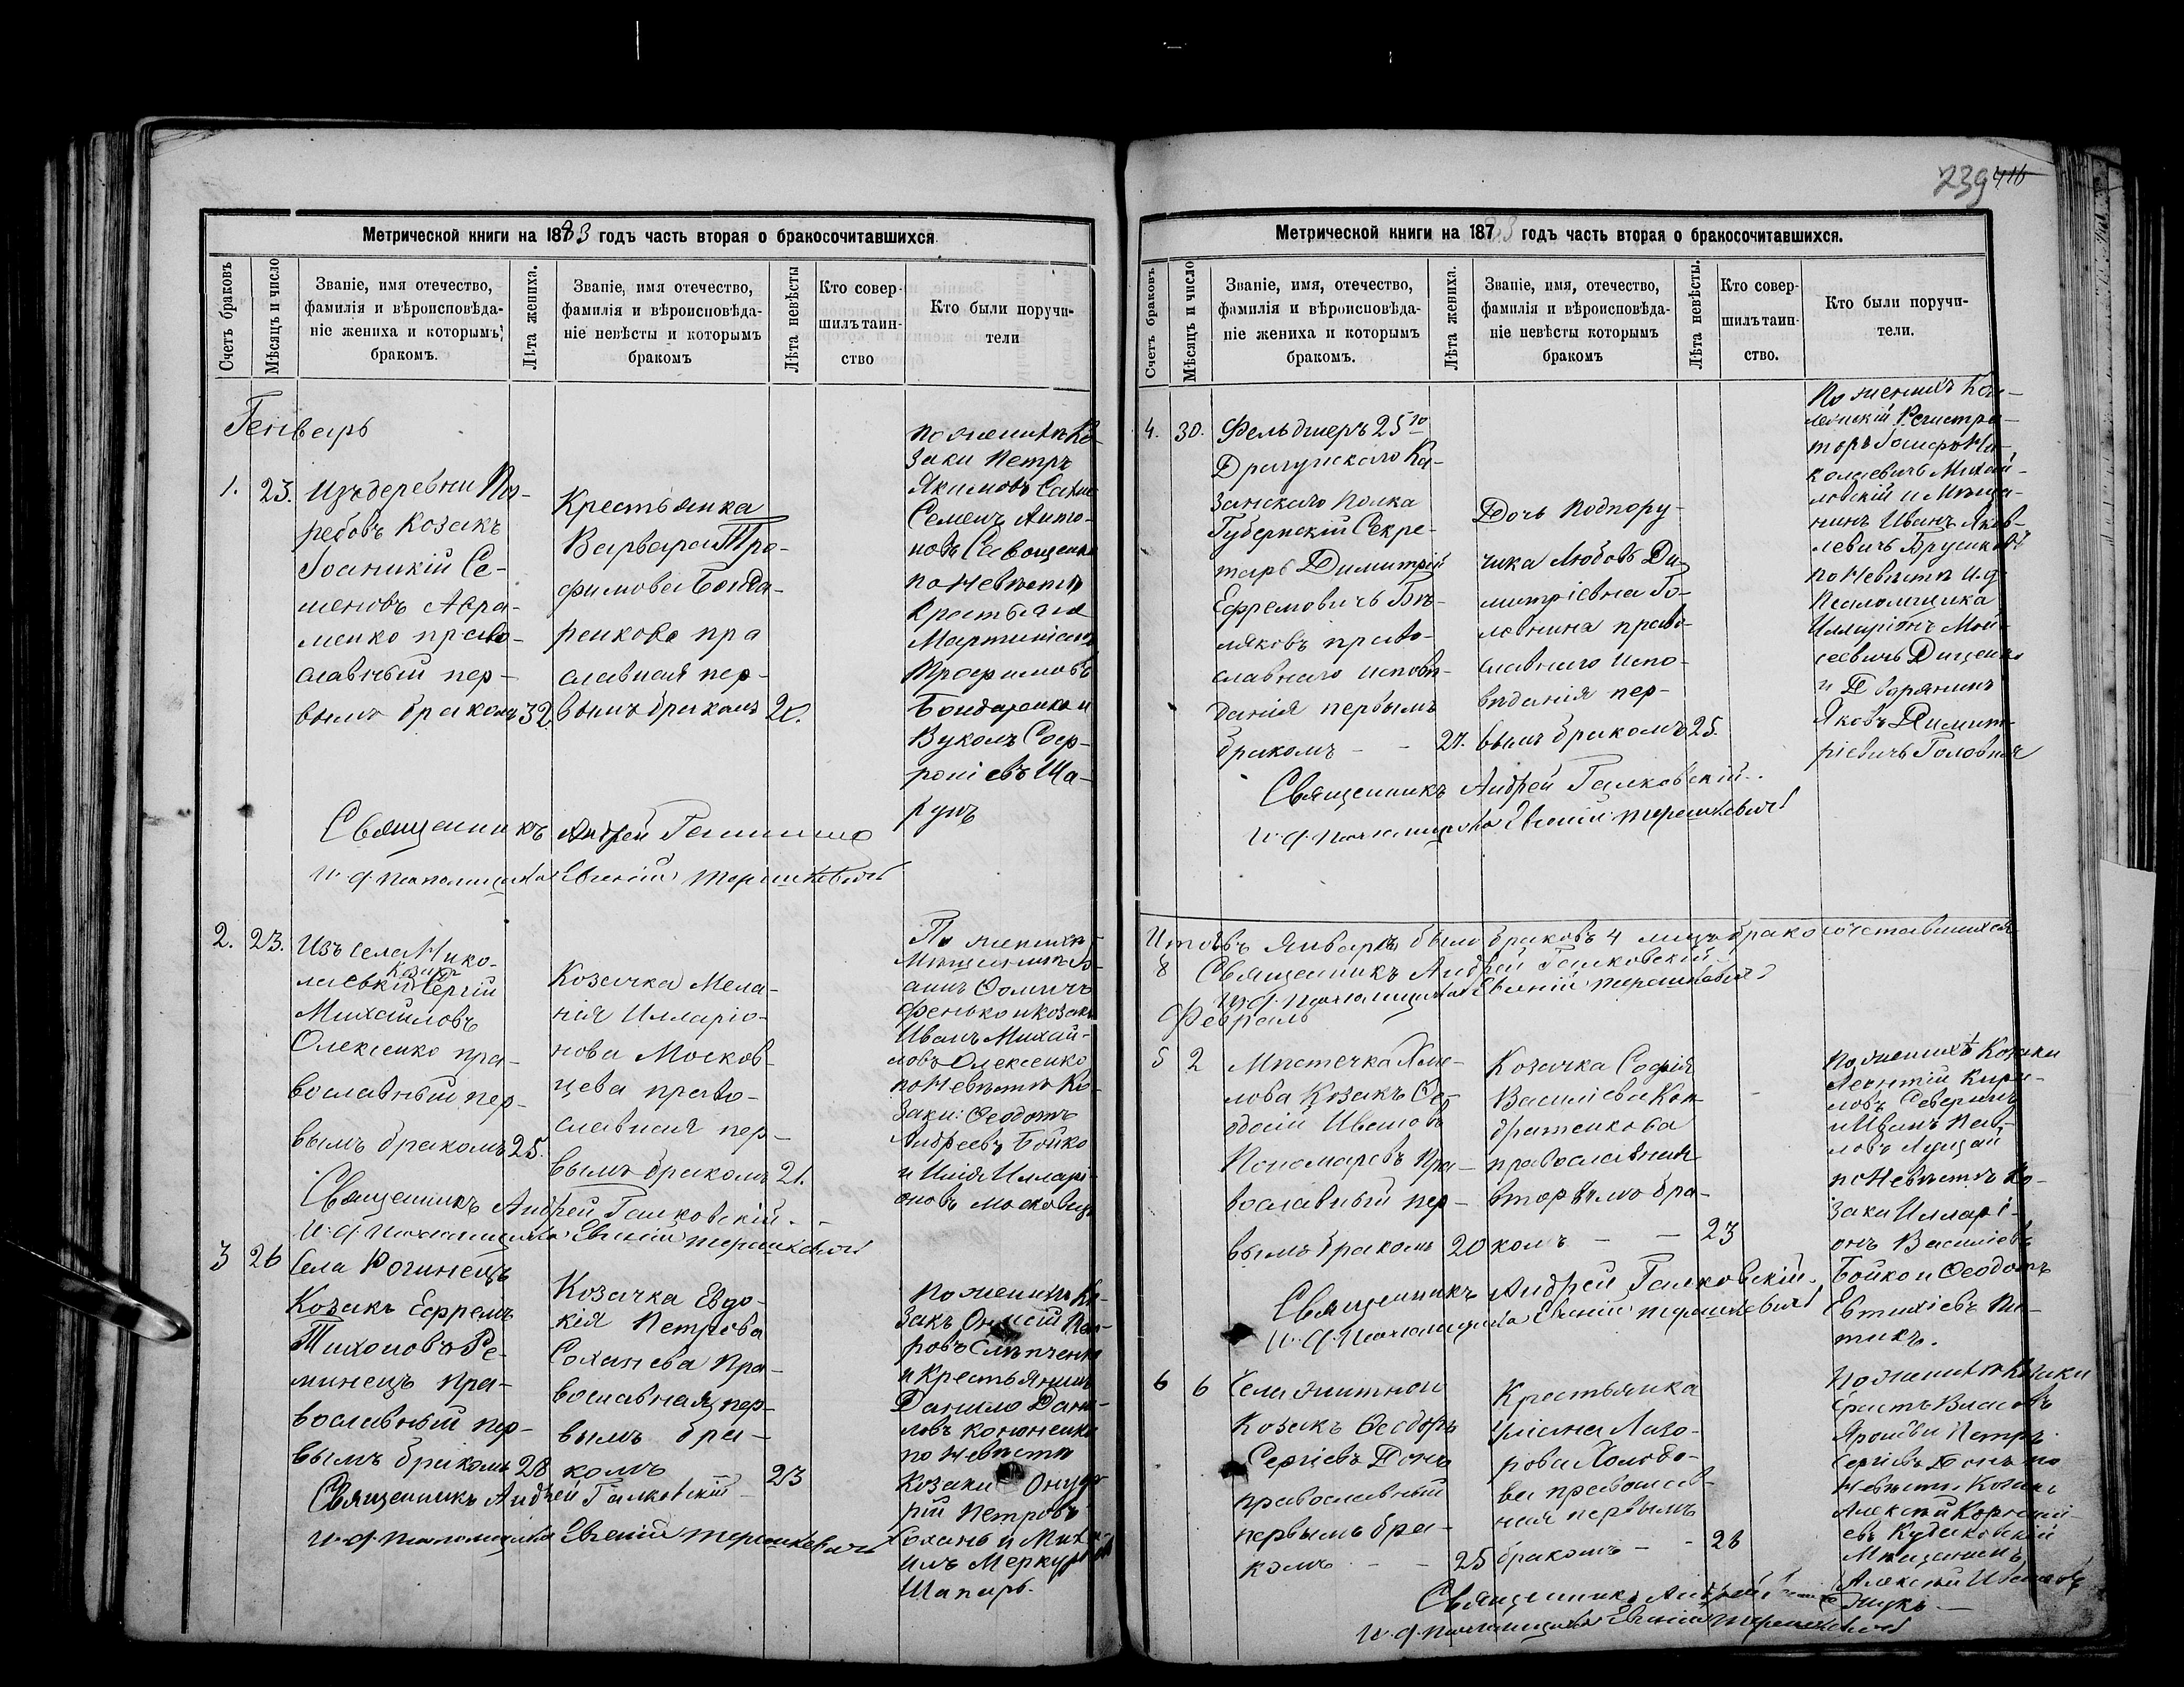 239 416
Метрической книги на 1883 годъ часть вторая о бракосочитавшихся
Счетъ браковъ
Мѣсяцъ и число
Званіе, имя отечество,
фамилія и вѣроисповѣда-
ніе жениха и которымъ
бракомъ.
Лѣта жениха.
Званіе, имя отечество,
фамилія и вѣроисповѣда-
ніе невѣсты и которымъ
бракомъ
Лѣта невѣсты
Кто совер-
шилъ таин-
ство
Кто были поручи-
тели
Генварь
1. 23.
Изъ деревни
ребовъ Козакъ
Іоаникій Се-
меновъ Авра-
менко право-
славный пер-
вымъ бракомъ 32.
Крестьянка
Варвара Тро-
фимова Бонда-
ренкова пра
славная пер-
вымъ бракомъ 20.
по женихѣ Ко-
заки Петръ
Якимовъ
Семенъ Анто-
новъ Савощенко
по Невѣстѣ
Крестьяне
Трофимовъ
Бондаренко и
Вуколъ Соф-
роніевъ Ша-
рунъ
Священникъ Андрей
и. д. псаломщика Евгеній Терашкевичъ
2. 23.
Изъ села Нико-
лаевки Козакъ Сергій
Михаиловъ
Олексенко пра-
вославный пер-
вымъ бракомъ 25.
Козачка Мела-
нія Илларіо-
нова Москов-
цева право-
славная пер-
вымъ бракомъ 21.
По женихѣ
Мѣщанинъ
Ѳомичъ
Фенько и козакъ
Иванъ Михай-
ловъ Олексенко
по Невѣстѣ Ко-
заки: Ѳеодотъ
Андреевъ Бойко
и Илларі-
оновъ Московецъ
Священникъ Андрей Галковскій
и. д. псаломщика Евгеній Терашкевичъ
3 26
Села Рогинецъ
Козакъ Ефремъ
Тихоновъ Ре-
минецъ пра-
вославный пер-
вымъ бракомъ 28
Козачка Евдо-
кія Петрова
Соханева пра-
вославная пер-
вымъ бра-
комъ 23
по женихѣ Ко-
закъ
ровъ
и Крестьянинъ
Данило Дани-
ловъ Кононенко
по Невѣстѣ
Козаки Онуф-
рій Петровъ
Сохань и Миха-
илъ Меркурьевъ
Шапарь.
Священникъ Андрей Галковскій
и. д. псаломщика Евгеній Терашкевичъ
Метрической книги на 1883 годъ часть вторая о бракосочитавшихся.
Счетъ браковъ.
Мѣсяцъ и число
Званіе, имя, отечество,
фамилія и вѣроисповѣда-
ніе жениха и которымъ
бракомъ.
Лѣта жениха.
Званіе, имя, отечество,
фамилія и вѣроисповѣда-
ніе невѣсты которымъ
бракомъ
Лѣта невѣсты.
Кто совер-
шилъ таин-
ство.
Кто были поручи-
тели.
4. 30.
Фельдшеръ 25го
Драгунскаго Ка-
занскаго Полка
Губернскій Секре-
тарь Димитрій
Ефремовичъ Бѣ-
ляковъ право-
славнаго исповѣ-
данія первымъ
бракомъ - - 27.
Дочь Подпору-
чика Любовь Ди-
митріевна Го-
ловнина право-
славнаго испо-
вѣданія пер-
вымъ бракомъ 25.
По женихѣ Кол-
лежскій Регистра-
торъ Іосифъ Ни-
колаевичъ Михай-
ловскій и Мѣща-
нинъ Иванъ Яков-
левичъ
по Невѣстѣ И. д.
Псаломщика
Илларіонъ Мои-
сеевичъ Диценко
и Дворянинъ
Яковъ Димит-
ріевичъ Головня
Священникъ Андрей Галковскій.
и. д. псаломщика Евгеній Терашкевичъ
Итого въ Январѣ было браковъ 4 лицъ бракосочетавшихся
8 Священникъ Андрей Галковскій
и. д. псаломщика Евгеній Терашкевичъ
Февраль
5 2
Мѣстечка
лова Козакъ Ѳе-
одосій Ивановъ
Пономаревъ пра-
вославный пер-
вымъ бракомъ 20
Козачка Софія
Василіева Кон-
дратенкова
православная
вторымъ бра-
комъ - - 23
по женихѣ Козаки
Леонтій Кири-
ловъ Северинъ
и Иванъ Пав-
ловъ
по Невѣстѣ Ко-
заки Иллартi-
онъ Василіевъ
Бойко и Ѳеодотъ
Евтихіевъ
тикъ.
Священникъ Андрей Галковскій.
и. д. псаломщика Евгеній Терашкевичъ
6 6
Села
Козакъ Ѳеодоръ
Сергіевъ Донъ
православный
первымъ бра-
комъ - - 25
Крестьянка
Уліана Лазо-
рова
ва православ-
ная первымъ
бракомъ - - 28
по женихѣ Козаки
Власовъ
Петръ
Сергіевъ Донъ по
Невѣстѣ Козакъ
Алексѣй Корнилі-
евъ
Мѣщанинъ
Алексѣй Ивановъ
Священникъ Андрей
и. д. псаломщика Евгеній Терашкевичъ